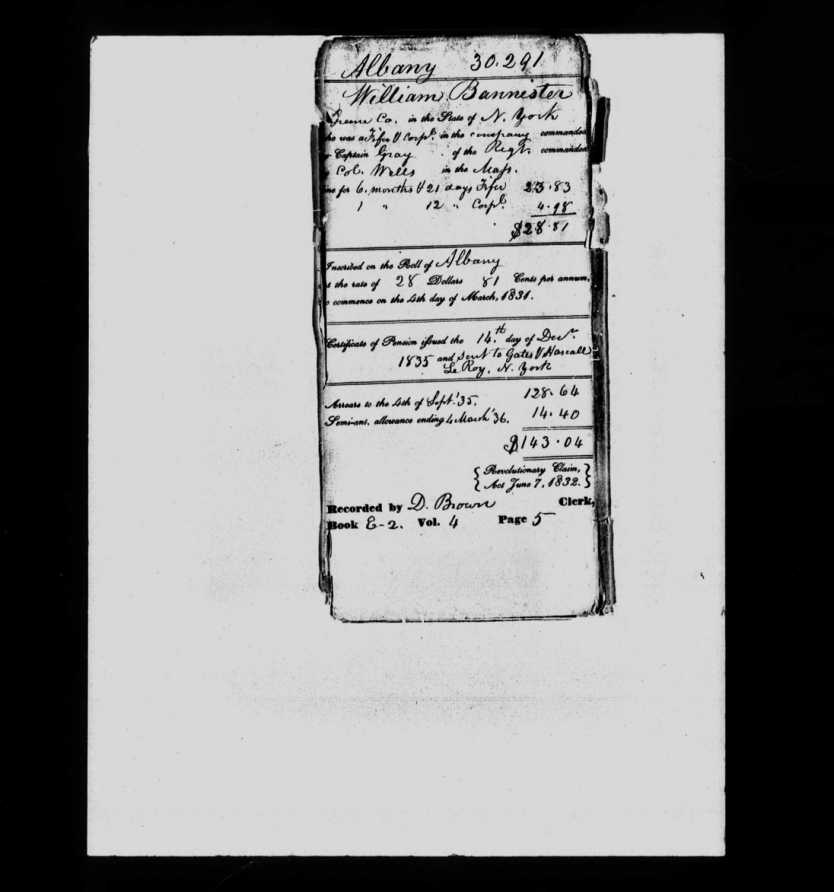 Albany 30.291
William Bannister
Greene Co. in the State of N. York
who was a Fifer & Corpl. in the company commanded
by Captain Gray of the Regt. commanded
by Col. Wells in the Mass.
line for 6. months & 21 days Fifer 23.83
1 " 12 " Corpl. 4.98
$28.81
Inscribed on the Roll of Albany
at the rate of 28 Dollars 81 Cents per annum,
to commence on the 4th day of March, 1831.
Certificate of Pension issued the 14.th day of Decr.
1835 and sent to Gates & Hascall
Le Roy, N. York
Arrears to the 4th of Sept. '35. 128.64
Semi-ant. allowance ending 4 March '36. 14.40
$143.04
{Revolutionary Claim,}
{Act June 7, 1832.}
Recorded by D. Brown Clerk,
Book E-2. Vol. 4 Page 5